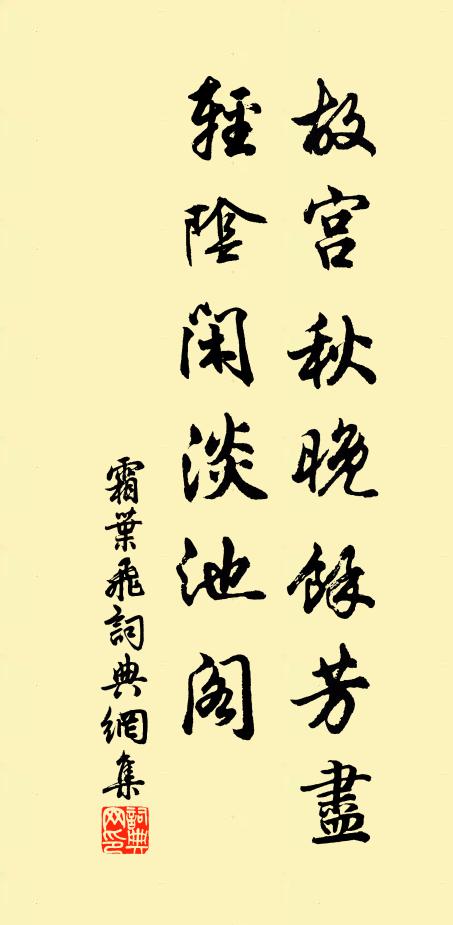 故宮秋晚餘芳盡
輕陰閑淡池閣
霜葉飛詞典網集
詞典網印